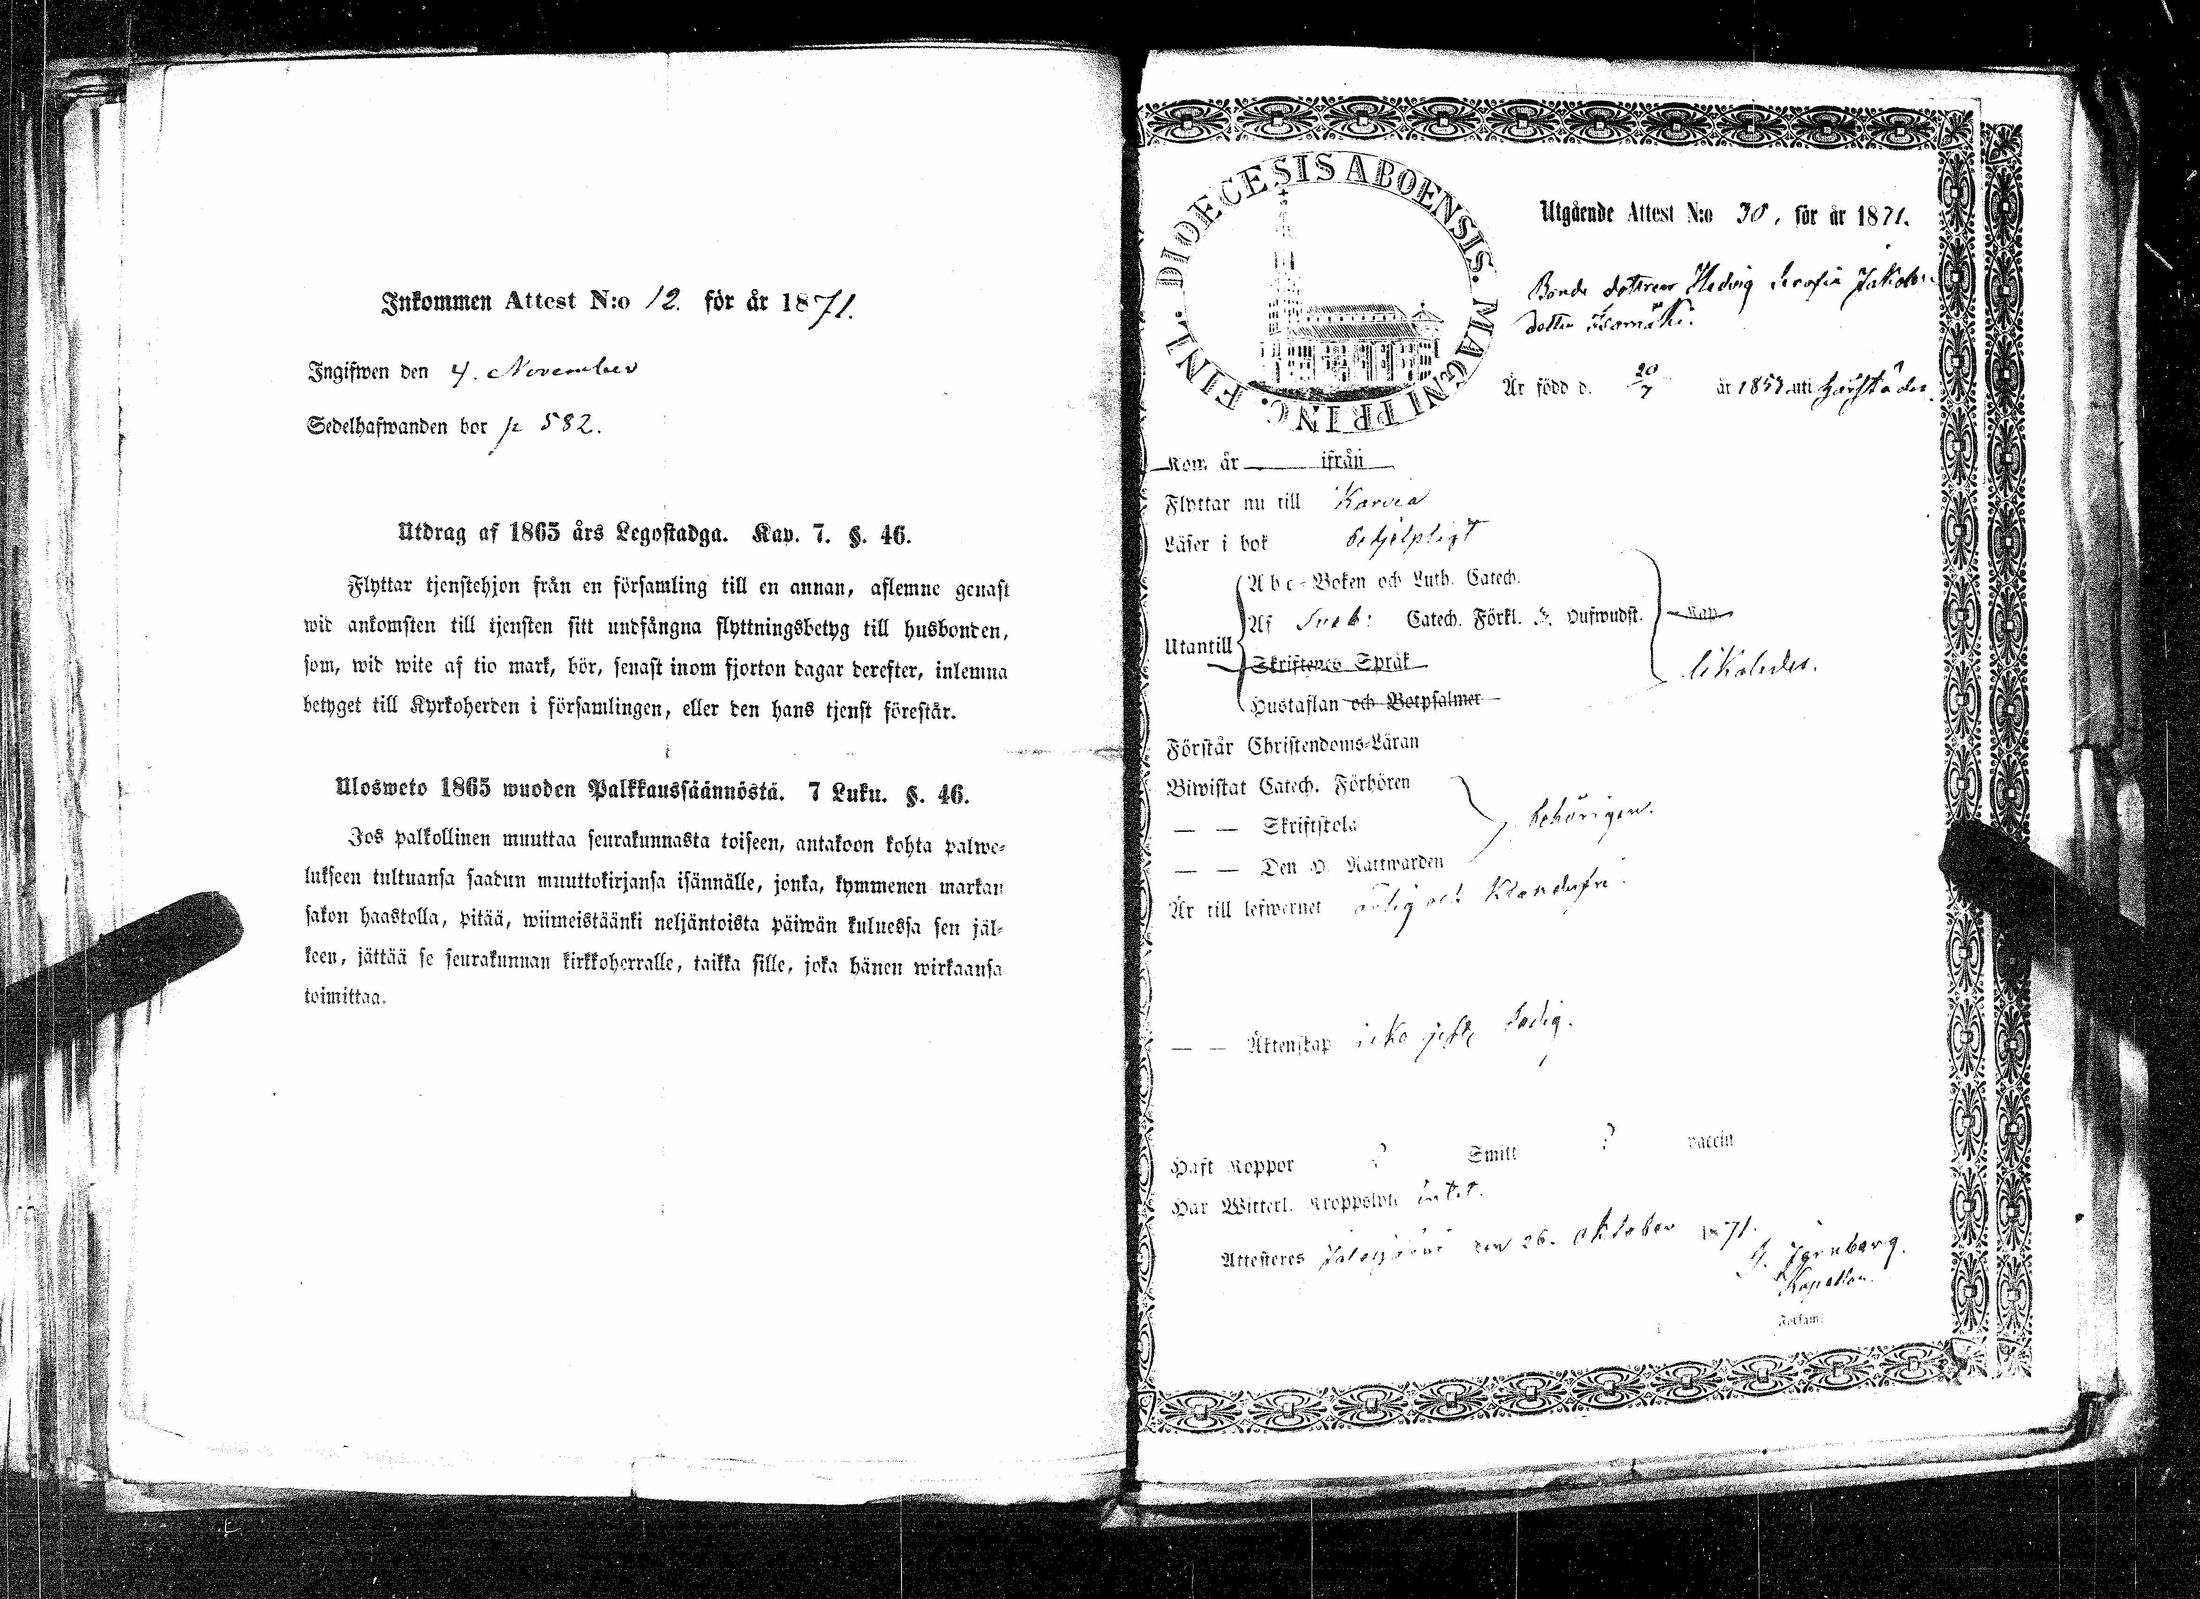 Inkommen Attest N:o 12. för år 1871.
Ingifwen den 4. November
Sedelhafwanden bor p 582.
Utdrag af 1865 års Legostadga. Kap. 7. §. 46.
Flyttar tjenstehjon från en församling till en annan, aflemne genast
wid ankomsten till tjensten sitt undfångna flyttningsbetyg till husbonden,
som, wid wite af tio mark, bör, senast inom fjorton dagar derefter, inlemna
betyget till Kyrkoherden i församlingen, eller den hans tjenst förestår.
Ulosweto 1865 wuoden Palkkaussäännöstä. 7 Luku. §. 46.
Jos palkollinen muuttaa seurakunnasta toiseen, antakoon kohta palwe-
lukseen tultuansa saadun muuttokirjansa isännälle, jonka, kymmenen markan
sakon haastolla, pitää, wiimeistäänki neljäntoista päiwän kuluessa sen jäl-
keen, jättää se seurakunnan kirkkoherralle, taikka sille, joka hänen wirkaansa
toimittaa.
DIOECESIS ABOENSIS. MAGNI PRINC. FINL.
Utgående Attest N:o 30, för år 1871.
Bonde dottren Hedvig Serafia Jakobs
dotter Isomäki.
Är född d. 20/7 år 185 uti
Kom. år ifrån
Flyttar nu till Karvia
Läser i bok behjelpligt
Abc-Boken och Luth. Catech.
Af Sveb: Catech. Förkl. Hufwudst. Kap.
Utantill
Skriftenes Språk
likaledes.
Hustaflan och Botpsalmer
Förstår Christendoms-Läran
Biwistat Catech. Förhören
— — Skriftskola behörigen.
— — Den H. Nattwarden
Är till lefwernet ärlig och klanderfri.
— — Äktenskap icke gift, ledig.
Haft Koppor ? Smitt ? vaccin
Har Witterl. Kroppslyte intet.
Attesteres Jalasjärvi den 26. Oktober 1871.
Kapellan.
Församl.